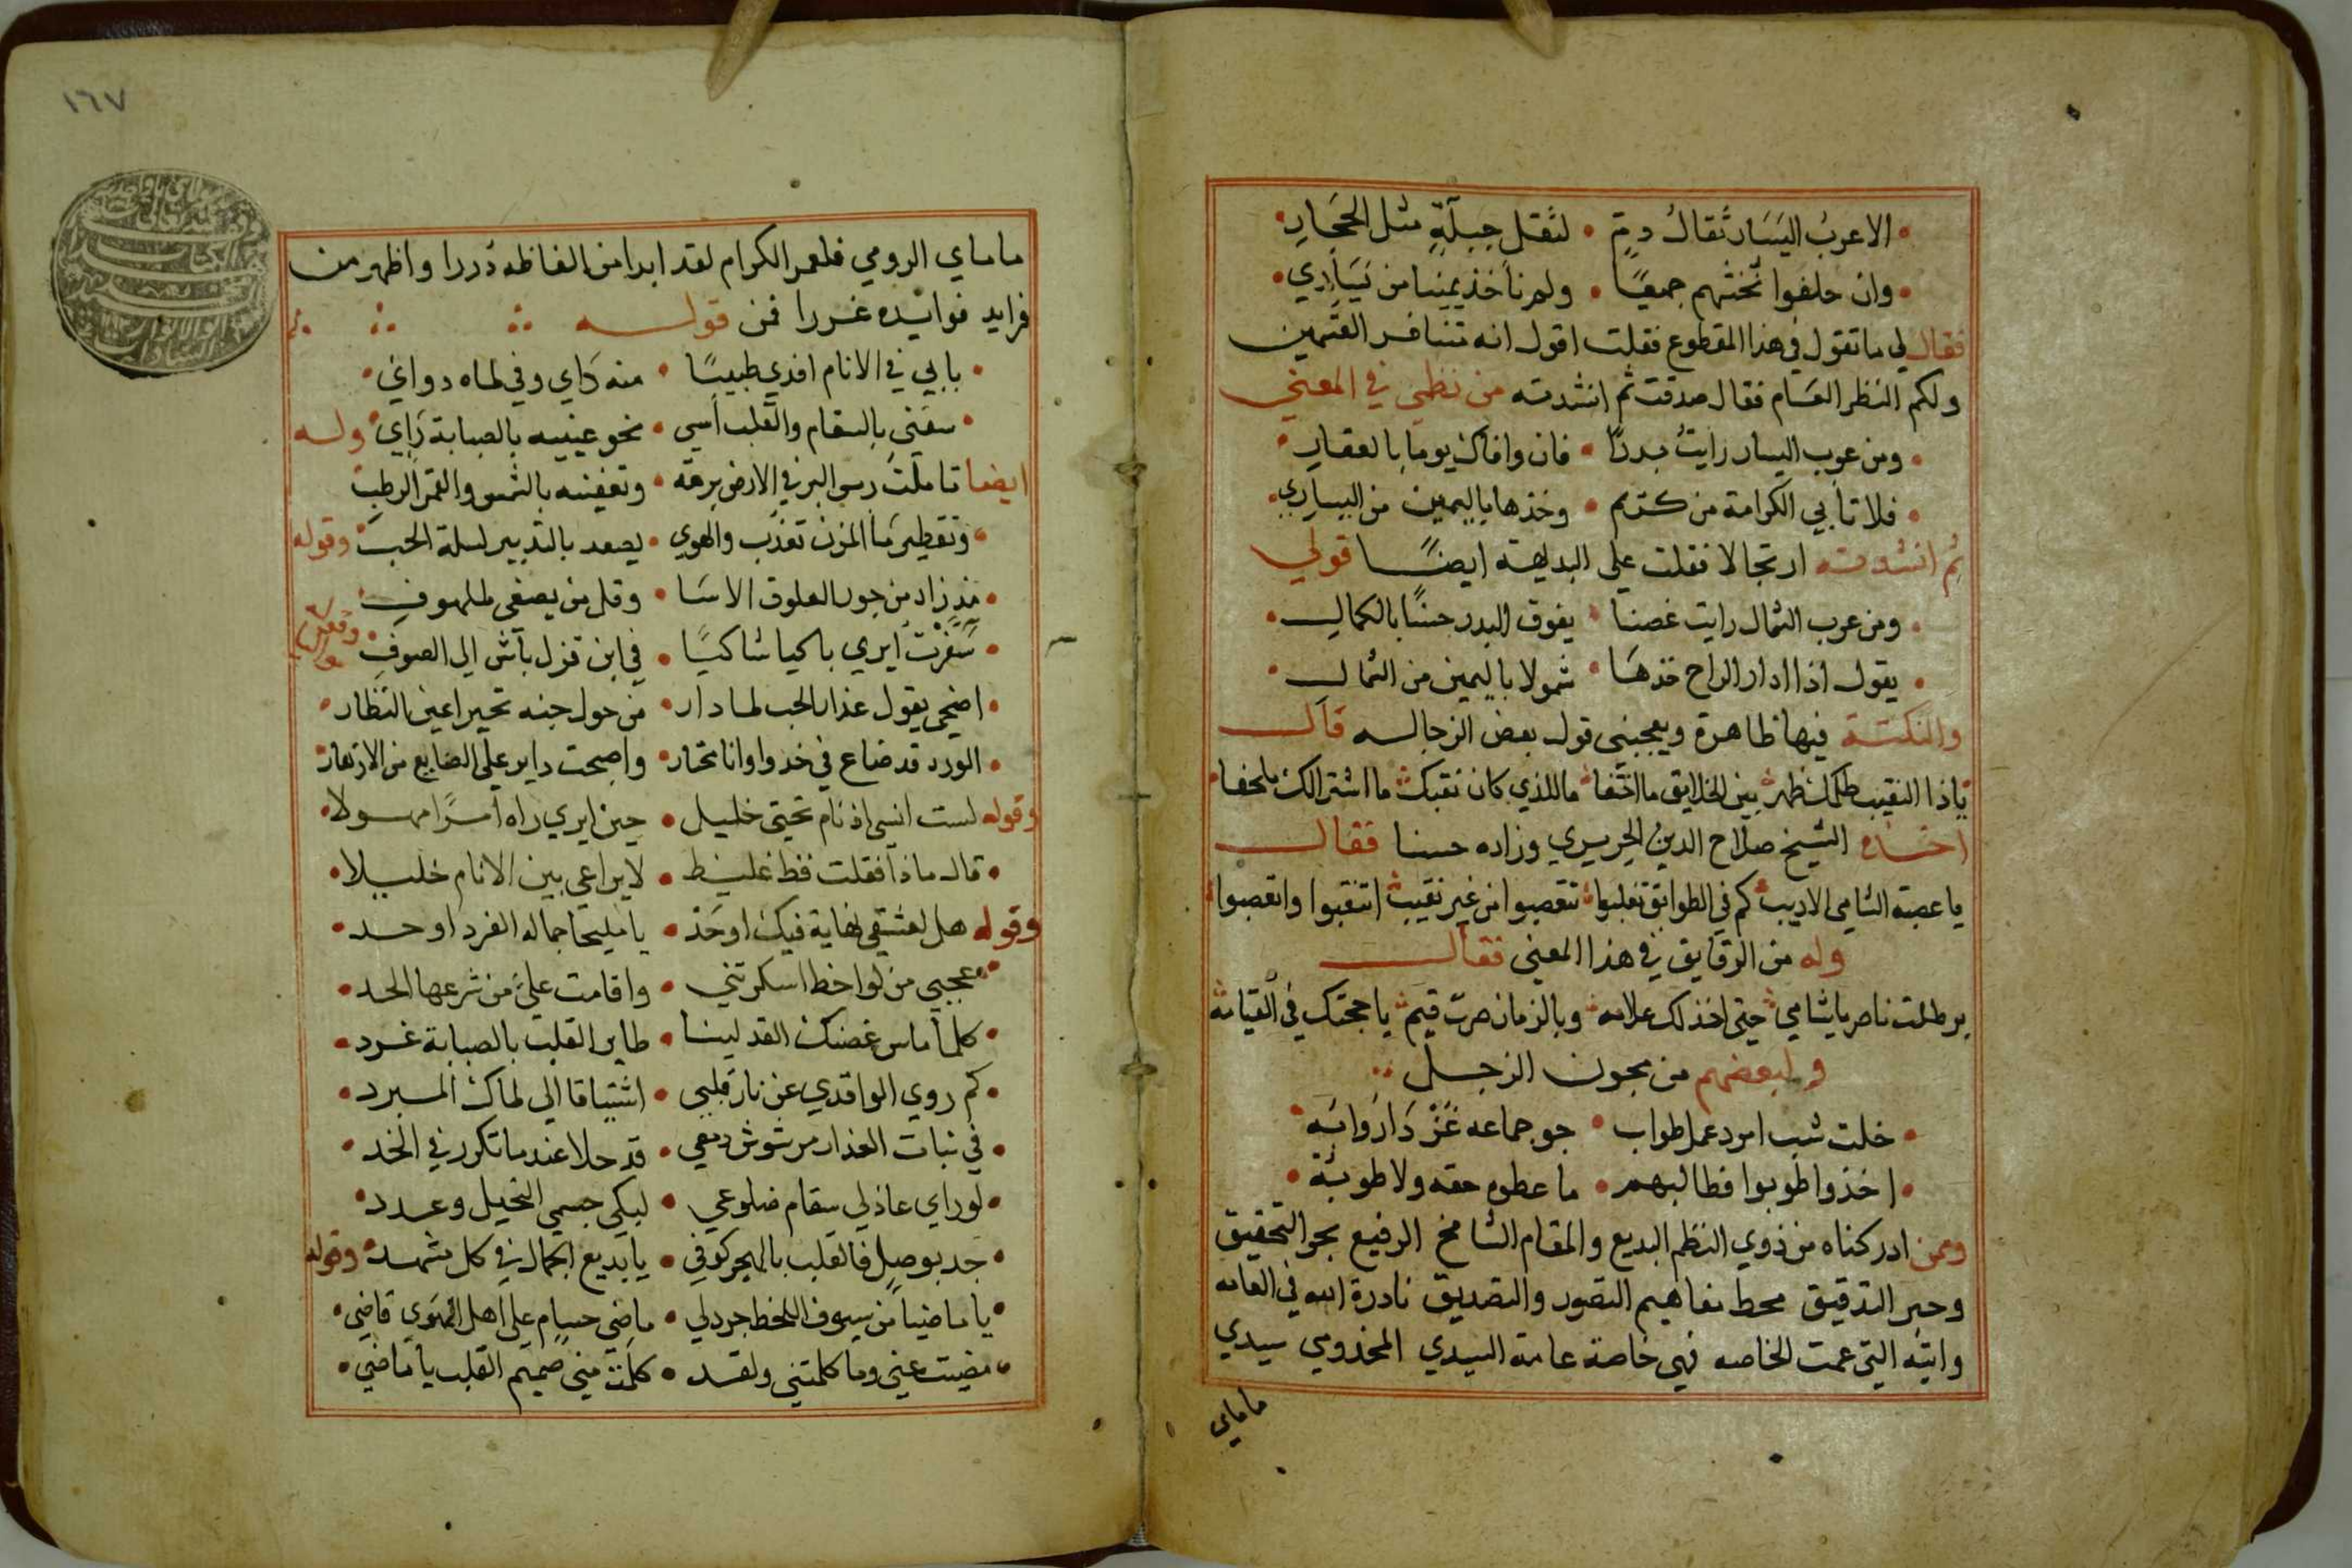 الاعرب اليسار ثقال دم • لثقل جبلة مثل الحجار
وان حلفوا تحنثهم جميعًا • ولم ناخذ يمينا من يساري
فقال لي ما تقول في هذا المقطوع فقلت اقول انه متنافر القسمين
ولكم النظر العسام فقال صدقت ثم انشدته من نظمي في المعني
ومن عرب اليسار رايت بدرًا • فان وافاك يوما بالعقار
فلا تابي الكرامة من كريم • وخذها باليمين من اليساري
ثم انشدته ارتجالا فقلت علي البديهة ايضًا قولي
ومن عرب الشمال رايت غصنا • يفوق البدر حسنًا بالكمال
يقول اذا ادار الراح خذها • شمولا باليمين من الشمال
والنكتة فيها ظاهرة ويعجبني قول بعض الزجاله قال
ياذا النقيب ظلمك ظهر بين الخلايق ما اختفا ماللذي كان نقبك ما اشترالك ملحفا
اخذه الشيخ صلاح الدين الحريري وزاده حسنا فقال
يا عصبة الشامي الاديب كم في الطوابق تغلبوا تتعصبوا من غير نقيب اتنقبوا واتعصبوا
وله من الرقايق في هذا المعني فقال
برطلت ناصر يا شامي حتي اخذ لك علامه وبالزمان صرت قيم يا حجتك في القيامه
ولبعضهم من مجون الزجل
خلت شب امرد عمل طواب • جو جماعه غز داروا به
اخذوا طوبوا فطالبهم • ما عطوه حقه ولا طوبة
وممن ادركناه من ذوي النظم البديع والمقام الشامخ الرفيع بحر التحقيق
وحبر التدقيق محط مفاهيم التصور والتصديق نادرة الله في العامه
وايته التي عمت الخاصه فهي خاصة عامة السيدي المخدومي سيدي
ماماي
١٦٧
ماماي الرومي فلعمر الكرام لقد ابدا من الفاظه دررا واظهر من
فرايد فوايده غررا فمن قوله
بابي في الانام افدي طبيبًا • منه داي وفي لماه دواي
سقني بالسقام والقلب اسي • نحو عينيه بالصبابة راي وله
ايضا تاملت رسم البر في الارض برقه • وتعفينه بالشمس والقمر الرطب
وتقطير ما المزن تعذب والهوي • يصعد بالتدبير لسلة الحب وقوله
مذ زاد من جور العلوق الاسا • وقل من يصغي لملهوف
سفرت ايري باكيا شاكيًا • في ابن قزل باش الي الصوف
اضحي يقول عذار الحب لما دار • من حول جنه تحير اعين النظار
الورد قد ضاع في خدوا وانا محتار • واصبحت داير علي الضايع من الازهار
وقوله لست انسي اذ نام تحتي خليل • حين ايري راه امرًا مهولا
قال ماذا فقلت فظ غليظ • لا يراعي بين الانام خليلا
وقوله هل لعشقي نهاية فيك او حد • يا مليحا جماله الفرد اوحد
عجبي من لواحظ اسكرتني • واقامت علي من شرعها الحد
كلما ماس غصنك القد لينا • طاير القلب بالصبابة غرد
كم روي الواقدي عن نار قلبي • اشتياقا الي لماك المبرد
في نبات العذار مرشوش دمعي • قد حلا عندما تكرر في الخد
لو راي عاذلي سقام ضلوعي • لبكي جسمي النحيل وعدد
جد بوصل فالقلب بالهجر كوفي • يا بديع الجمال في كل مشهد وقوله
يا ماضيا من سيوف اللحظ جرد لي • ماضي حسام علي اهل الهوي قاضي
مضيت عني وما كلمتني ولقد • كلمت مني صميم القلب يا ماضي